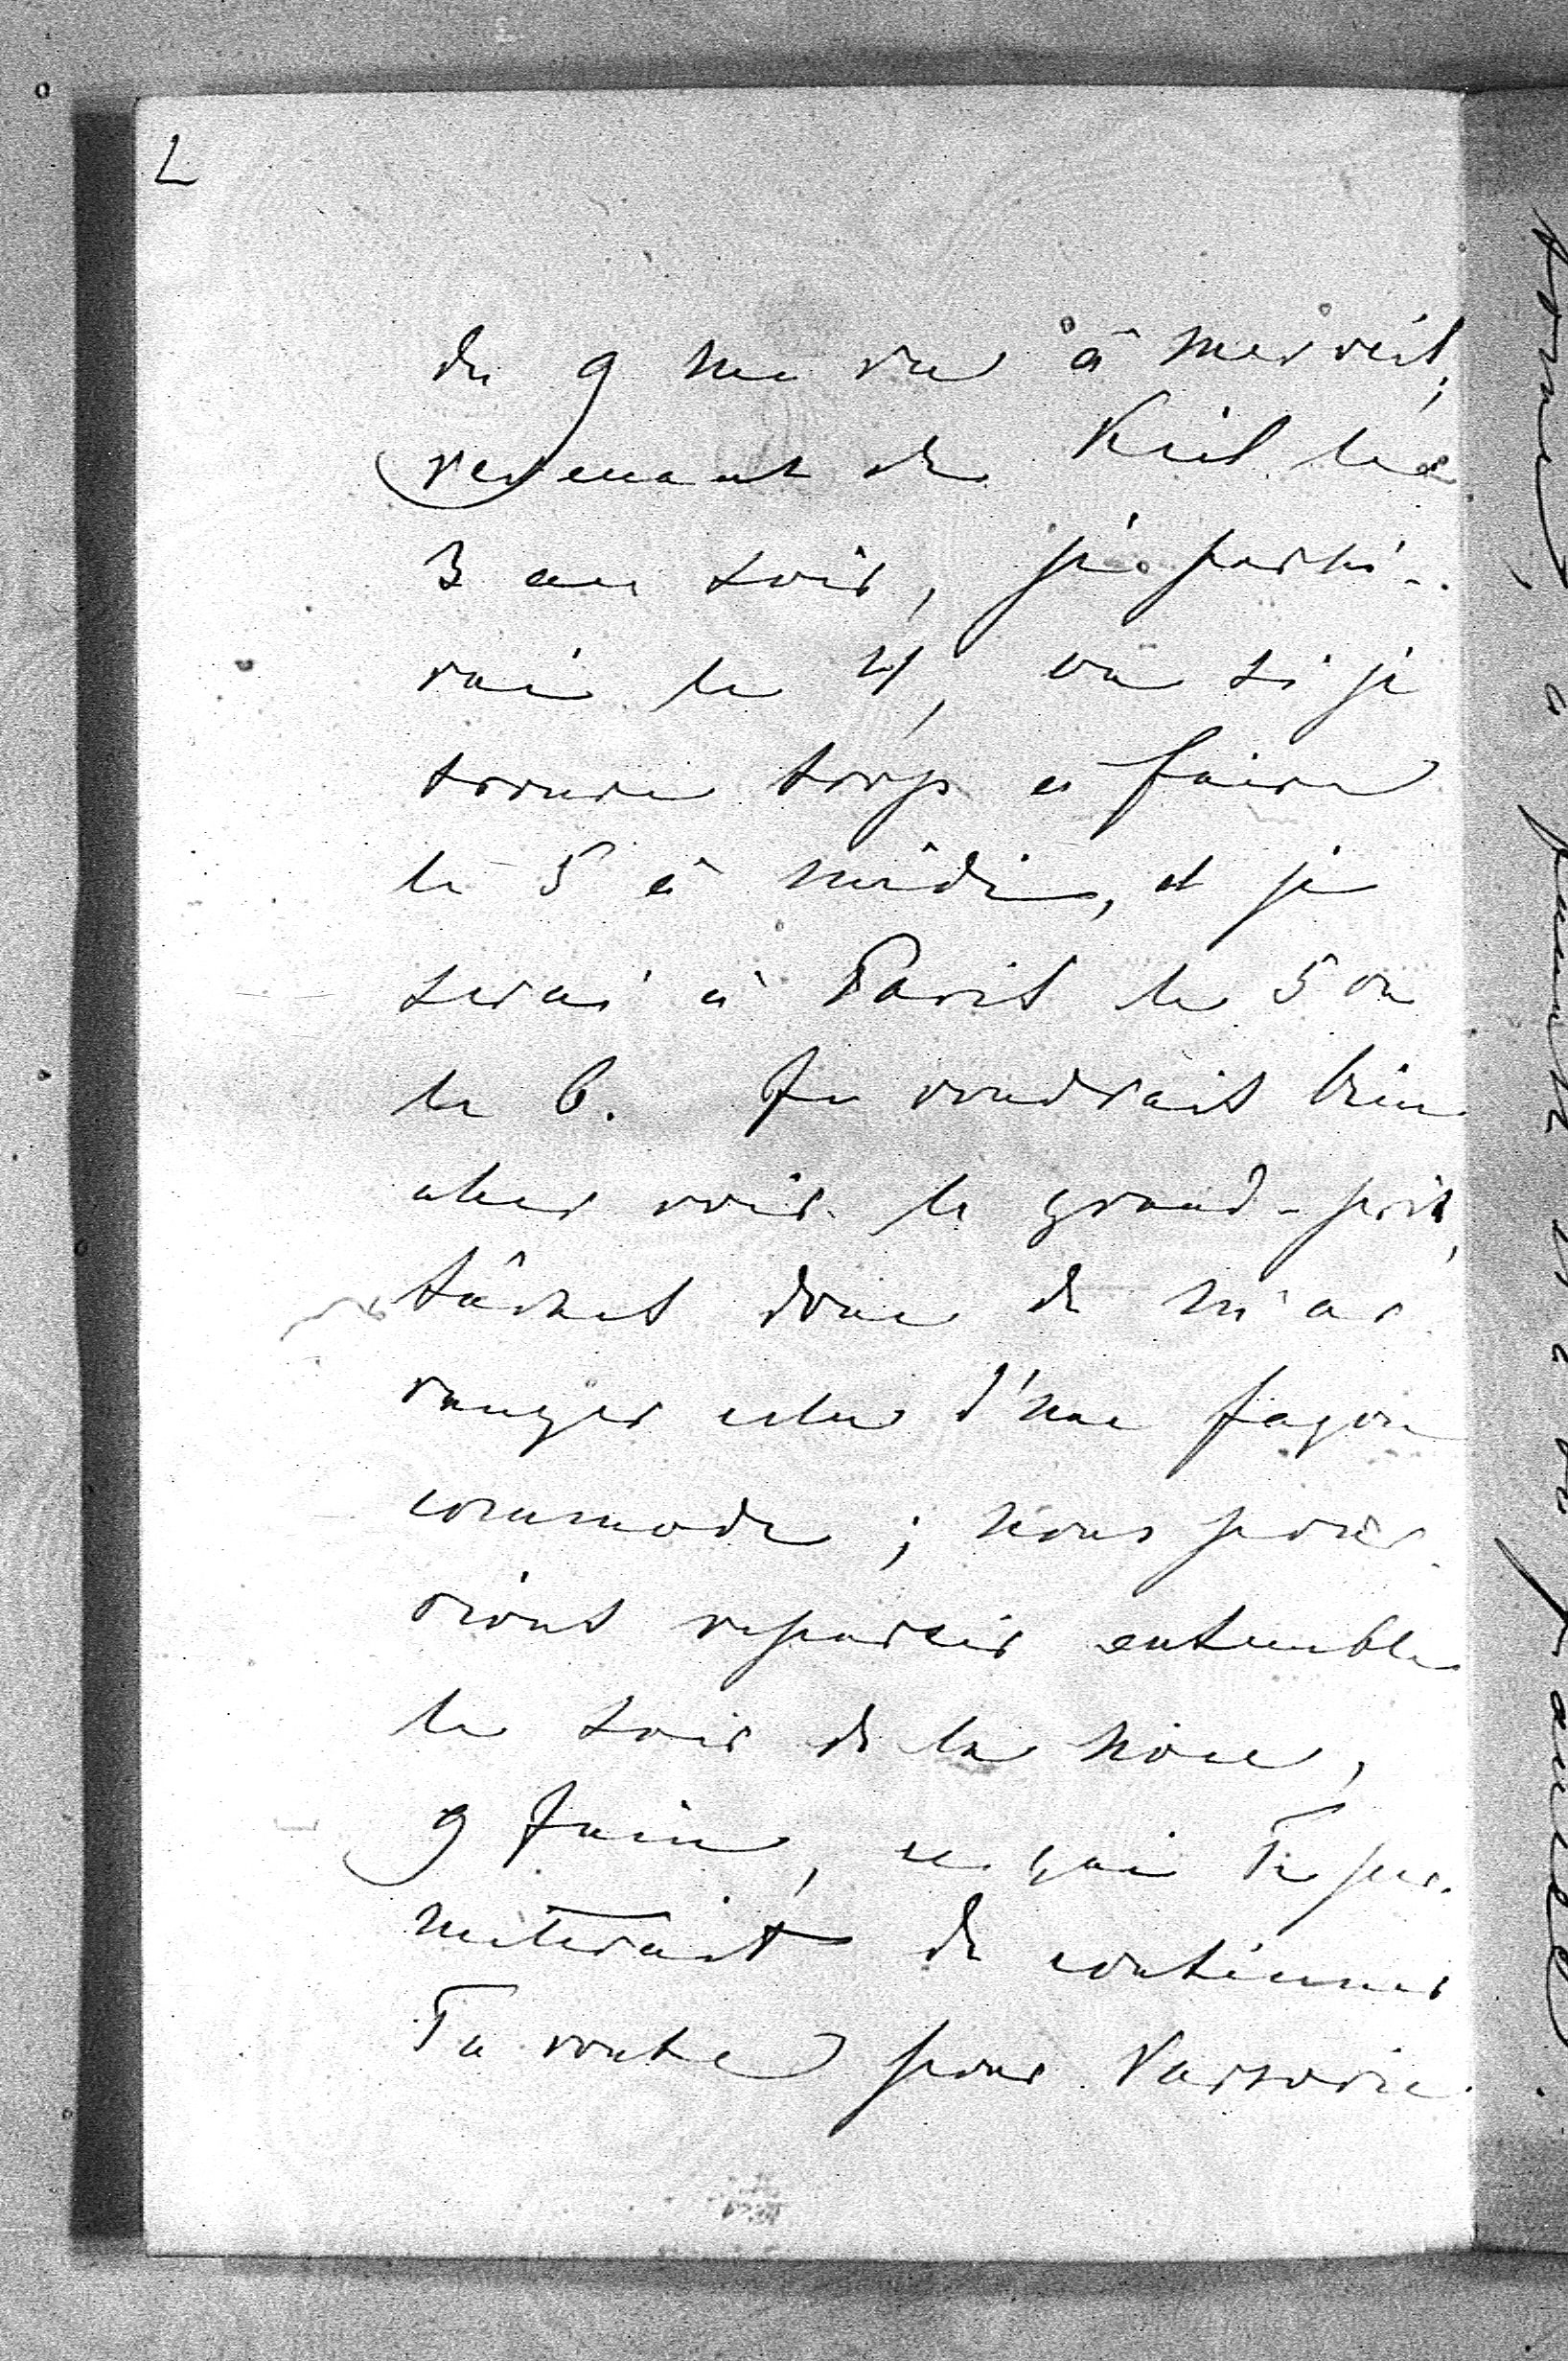 L
du 9 me va à merveil,
revenant de Kiel le
3 au soir, je parti-
rai le 4, ou si je
trouve trop à faire
le 5 à midi, et je
serai à Paris le 5 ou
le 6. Je voudrais bien
aller voir le grand-prix,
tâches donc de m'ar
ranger cela d'une façon
commode; nous pour-
rions repartir ensemble
le soir de la noce,
9 Juin, ce qui Te per-
metterait de continuer
Ta route pour Varsovie.